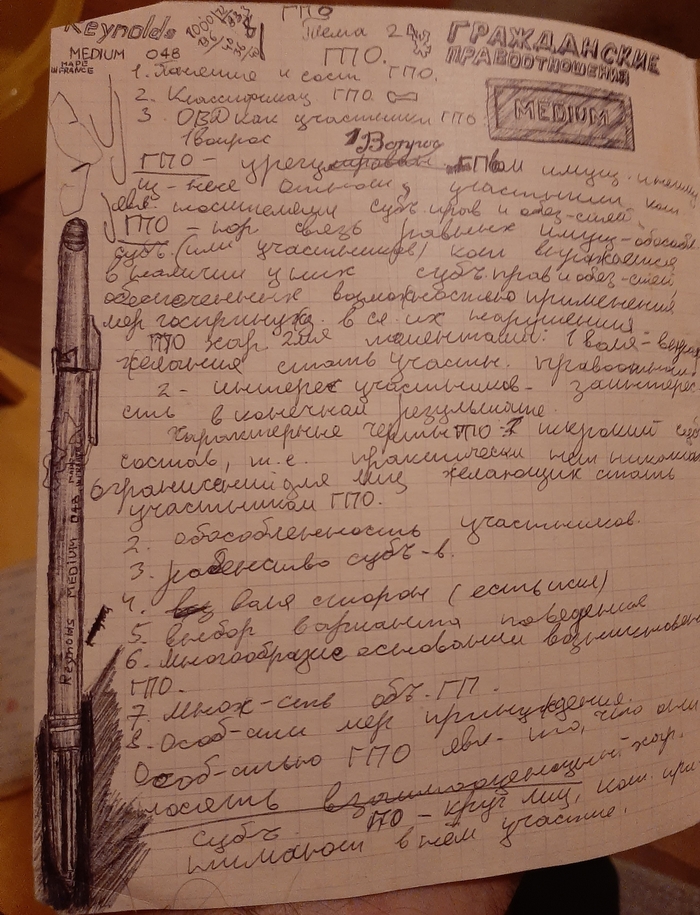 Reynolds
MEDIUM 048
MADE
IN FRANCE
ГПО
Тема 2
ГПО.
ГРАЖДАНСКИЕ
ПРАВООТНОШЕНИЯ
MEDIUM
1. Понятие и сост ГПО.
2. Классификац ГПО.
3. ОВД как участники ГПО
1 вопрос 1 Вопрос
ГПО - урегулированы ГПвом имущ. и неимущ
участники кот
явл носителями субъ прав и обяз-стей.
ГПО - пор связь равных имущ-обособл
субъ. (или участников) кот выражается
в наличии у них субъ прав и обяз-стей
обеспеченных возможностью применения
мер госпринужд. в сл. их нарушения
ГПО хар 2мя моментами: 1 воля -
желания стать участн. правоотношений
2 - интерес участников - заинтерес
сть в конечном результате.
Характерные черты ГПО 1 широкий субъ
состав, т.е. практически нет никаких
ограничений для лиц желающих стать
участником ГПО.
2. обособленность участников.
3. равенство субъ-в.
4. воля сторон (есть искл)
5. выбор варианта поведения
6. Многообразие основании возникновен
ГПО.
7. Множ-сть объ. ГП.
8. Особ-сти мер принуждения.
Особ-стью ГПО явл- то, что они
носять взаимооценочный хар.
субъ. ПО - круг лиц, кот. при-
нимают в нём участие.
Reynolds MEDIUM 048 MADE